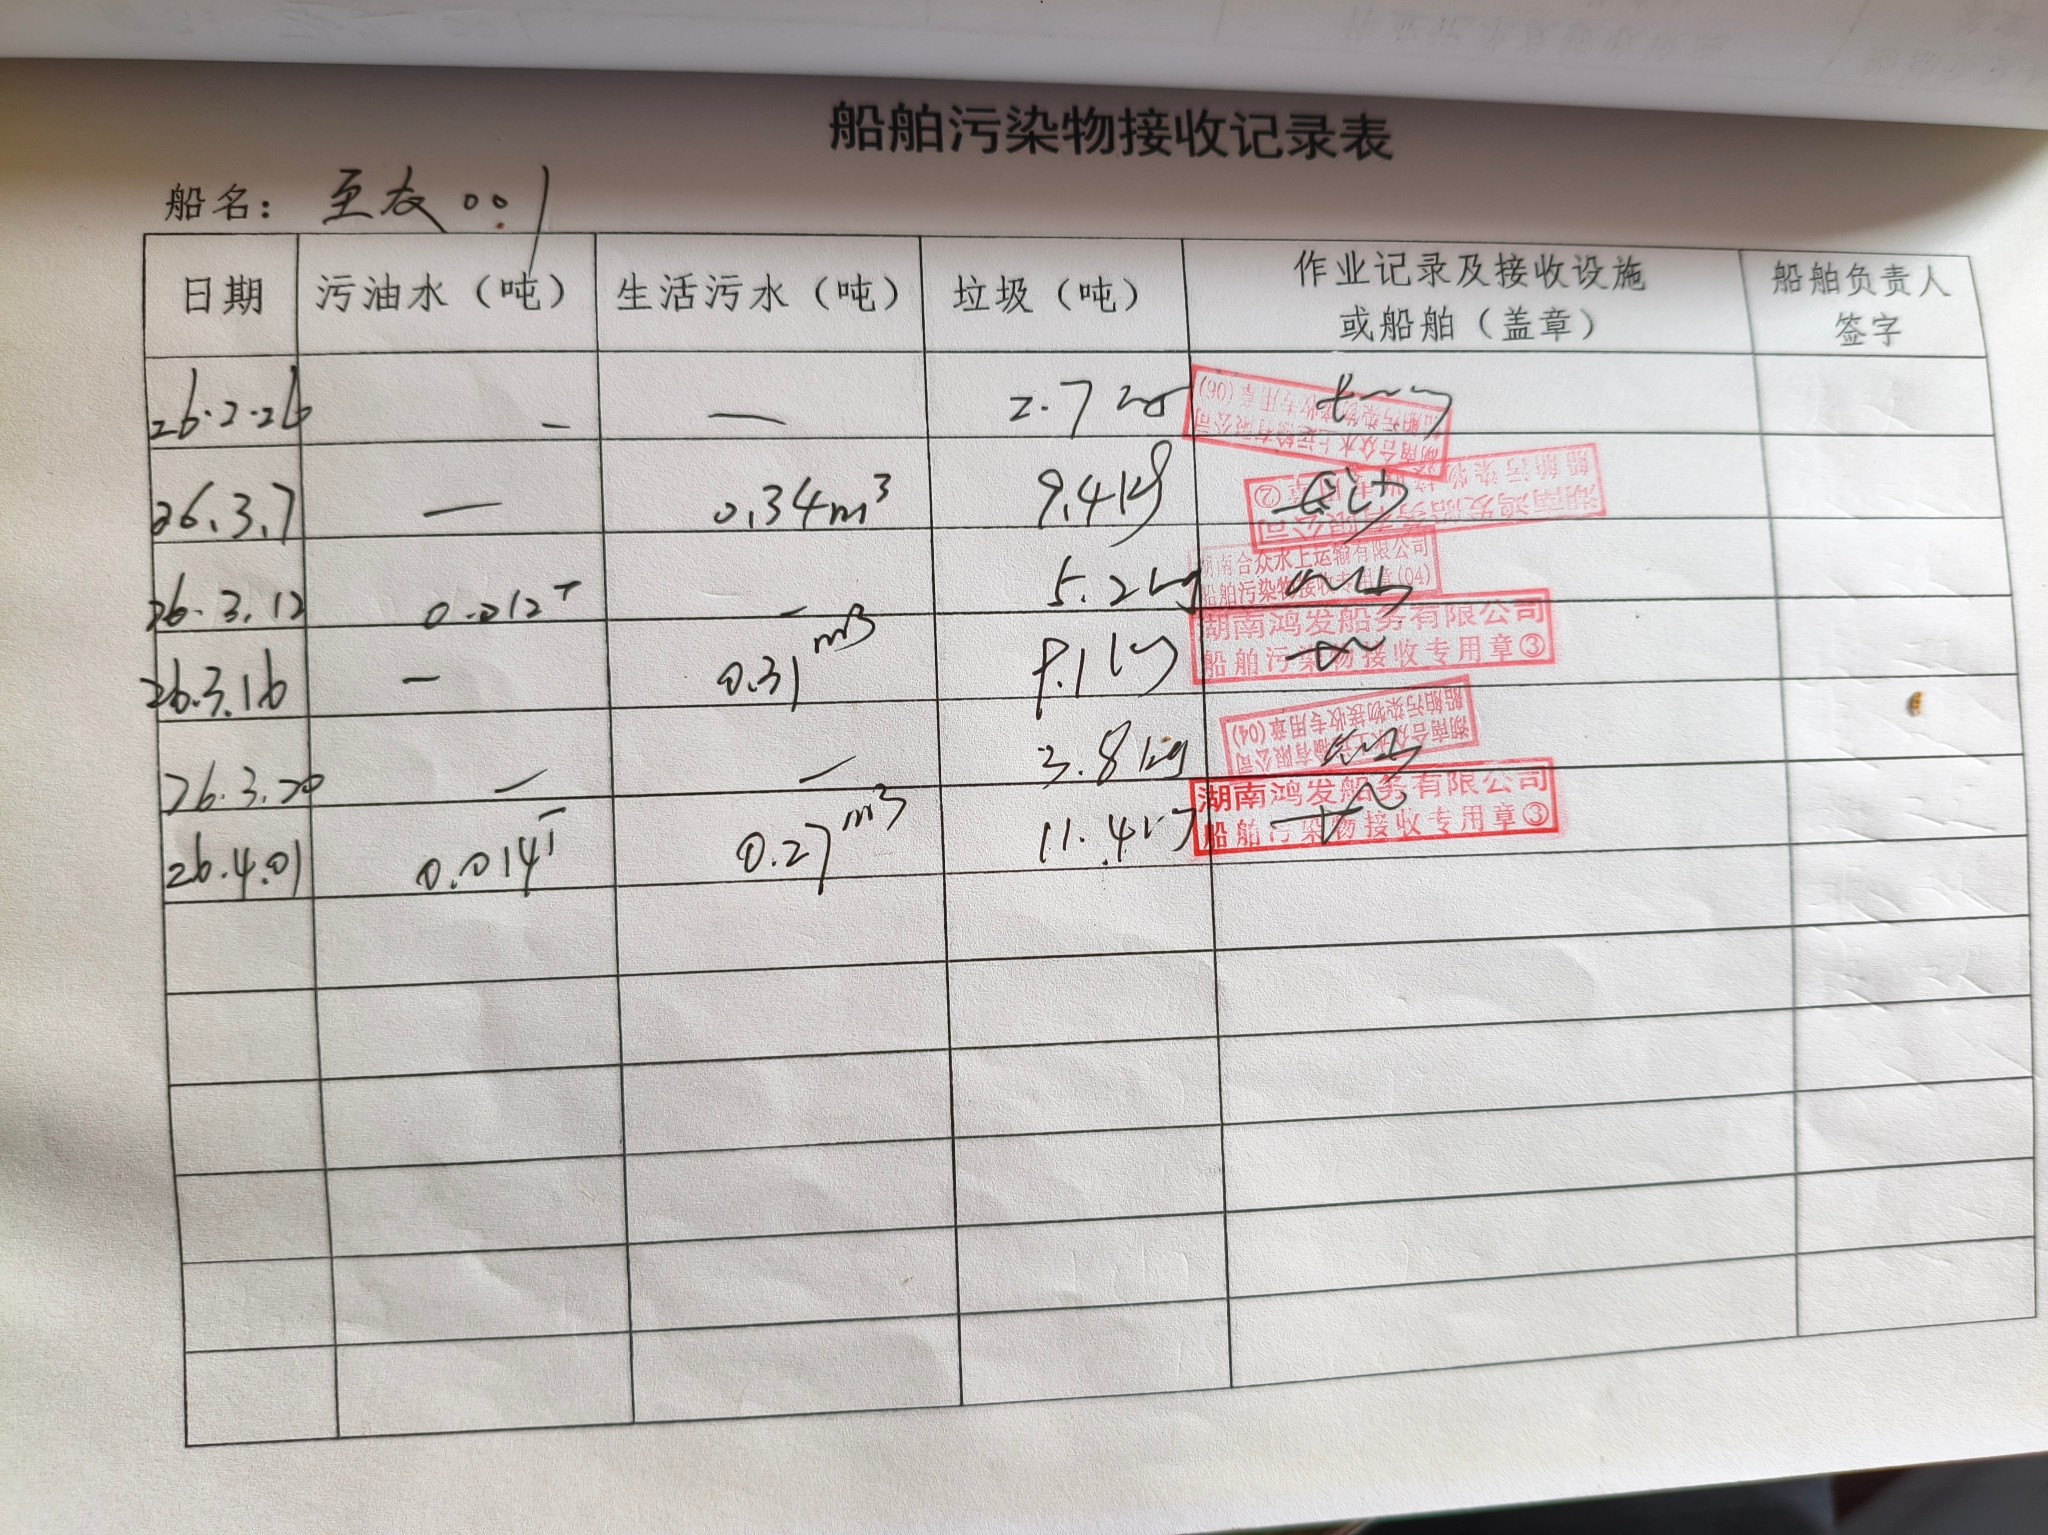 船舶污染物接收记录表
船名: 至友001
日期 污油水（吨） 生活污水（吨） 垃圾（吨） 作业记录及接收设施或船舶（盖章） 船舶负责人签字
26.2.26 — — 2.7kg 湖南合众水上运输有限公司 船舶污染物接收专用章(06)
26.3.7 — 0.34m³ 9.4kg 湖南鸿发船务有限公司 船舶污染物接收专用章②
26.3.12 0.012T — 5.2kg 湖南合众水上运输有限公司 船舶污染物接收专用章(04)
26.3.16 — 0.31m³ 9.1kg 湖南鸿发船务有限公司 船舶污染物接收专用章③
26.3.20 — — 3.8kg 湖南合众水上运输有限公司 船舶污染物接收专用章(04)
26.4.01 0.014T 0.27m³ 11.4kg 湖南鸿发船务有限公司 船舶污染物接收专用章③